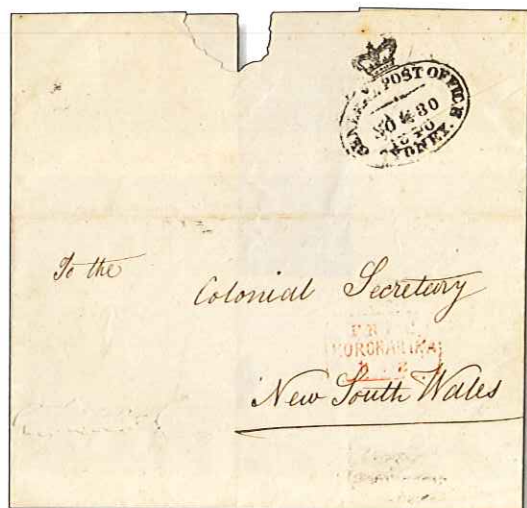 GENERAL POST OFFICE
30
SYDNEY.
To the
Colonial Secretary
KORORARIKA
New South Wales